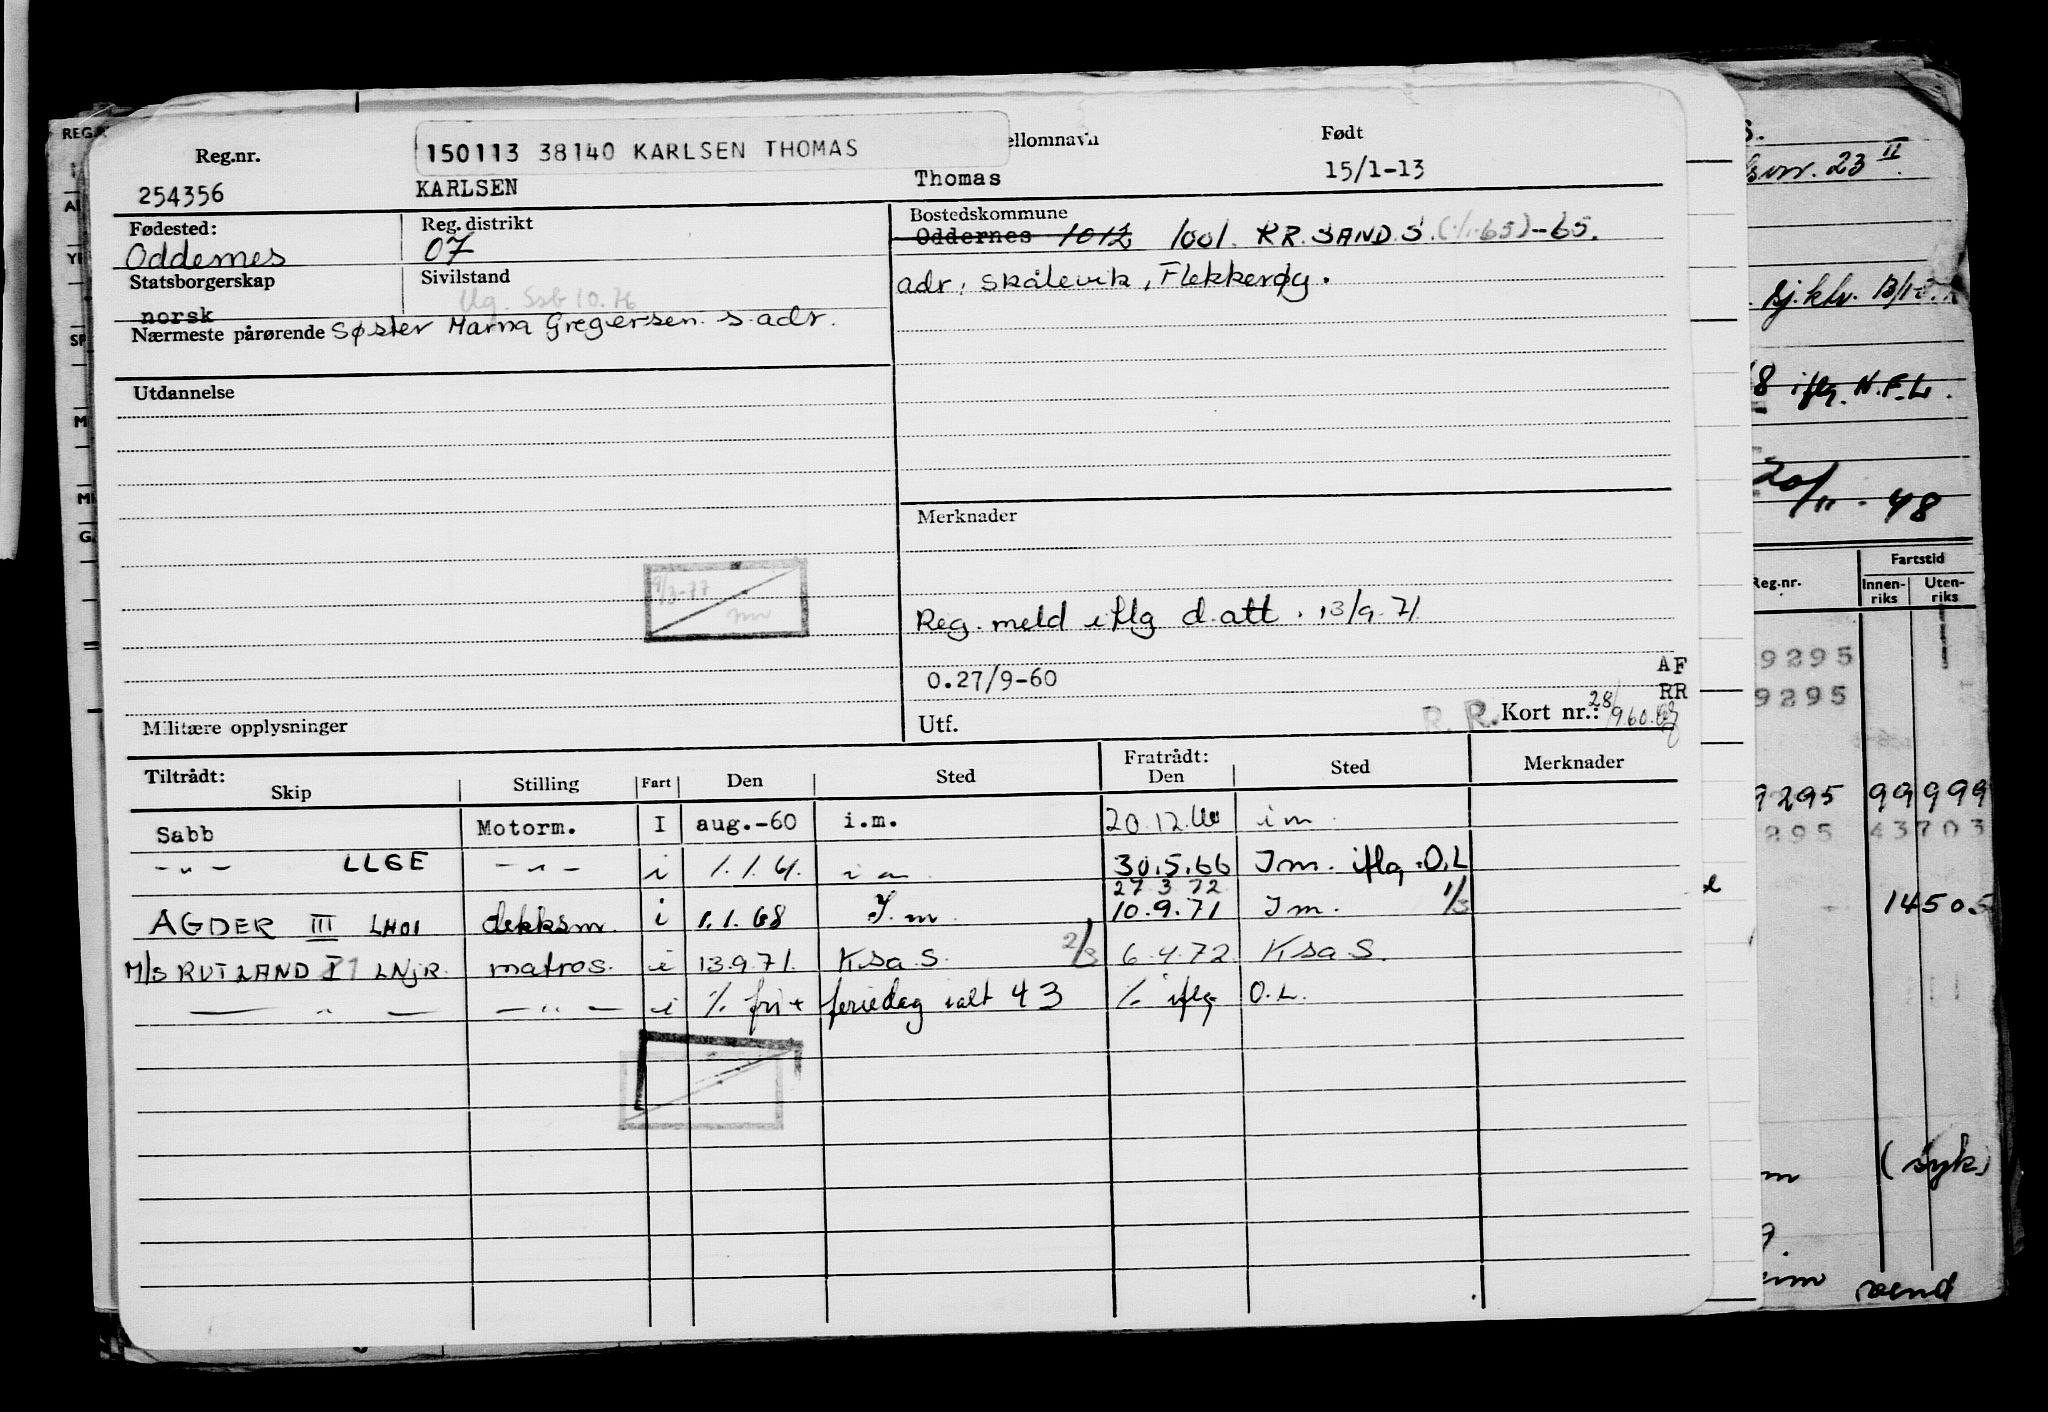 150113 38140 KARLSEN THOMAS
Reg.nr. ellomnavn Født
254356 KARLSEN Thomas 15/1-13
Fødested: Reg. distrikt Bostedskommune
Oddernes 07 Oddernes 1012 1001. KR. SAND. S. (1/1-65)-65.
Statsborgerskap Sivilstand adr, Skålevik, Flekkerøy.
norsk
Nærmeste pårørende Søster Marna Gregersen s. adr.
Utdannelse
Merknader
Reg. meld iflg d. att. 13/9.71
0.27/9-60
AF
RR
Militære opplysninger Utf. R. R. Kort nr.: 28/9 60.
Tiltrådt: Fratrådt:
Skip Stilling Fart Den Sted Den Sted Merknader
Sabb Motorm. I aug.-60 i.m. 20.12. i m
- " - LLGE - " - i 1.1.61. i m 30.5.66 I m. iflg. O.L
27 3 72
AGDER III LHOI dekksm. i 1.1.68 I. m. 10.9.71 I m. 1/3
M/S RUTLAND I LNJR matros. i 13.9.71. Ksa S. 2/3 6.4.72 Ksa S.
— " — — " — i % fri + feriedag ialt 43 % iflg O.L.
REG.
S.
23 II.
sj.ktr. 13/1
8 iflg. N.F.L.
20/11.48
Reg.nr. Fartstid
Innen-riks Uten-riks
9295
9295
9295 99 999
295 43703
14505
(syk)
9.